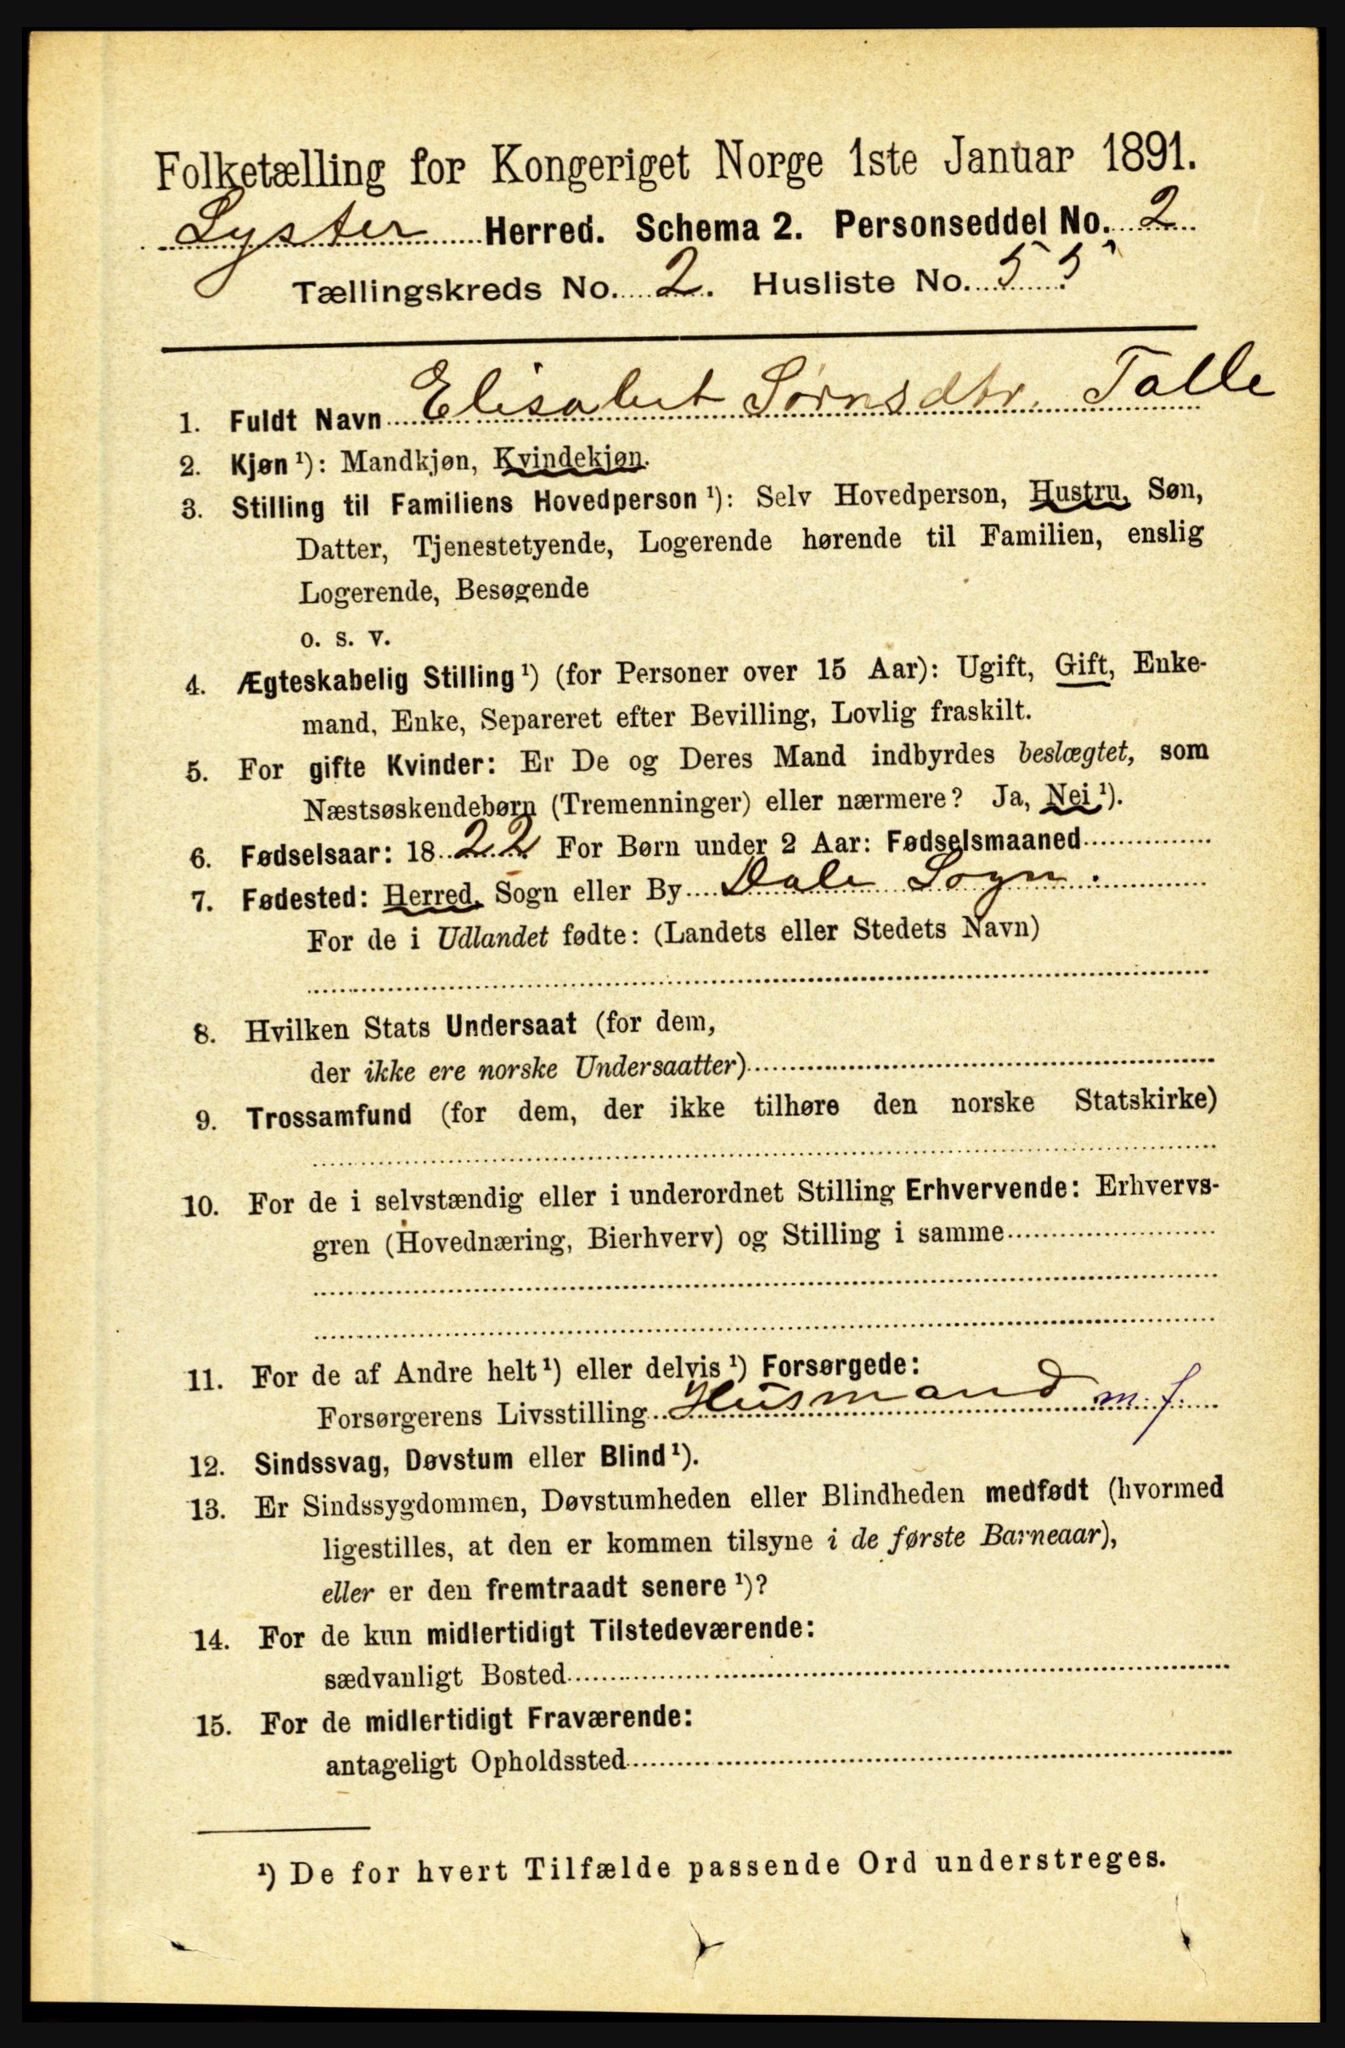 Folketælling for Kongeriget Norge 1ste Januar 1891.
Lyster Herred. Schema 2. Personseddel No. 2
Tællingskreds No. 2. Husliste No. 55
1. Fuldt Navn Elisabet Sørnsdtr. Talle
2. Kjøn ¹): Mandkjøn, Kvindekjøn.
3. Stilling til Familiens Hovedperson ¹): Selv Hovedperson, Hustru, Søn,
Datter, Tjenestetyende, Logerende hørende til Familien, enslig
Logerende, Besøgende
o. s. v.
4. Ægteskabelig Stilling ¹) (for Personer over 15 Aar): Ugift, Gift, Enke-
mand, Enke, Separeret efter Bevilling, Lovlig fraskilt.
5. For gifte Kvinder: Er De og Deres Mand indbyrdes beslægtet, som
Næstsøskendebørn (Tremenninger) eller nærmere? Ja, Nei ¹).
6. Fødselsaar: 1822 For Børn under 2 Aar: Fødselsmaaned
7. Fødested: Herred, Sogn eller By Dale Sogn.
For de i Udlandet fødte: (Landets eller Stedets Navn)
8. Hvilken Stats Undersaat (for dem,
der ikke ere norske Undersaatter)
9. Trossamfund (for dem, der ikke tilhøre den norske Statskirke)
10. For de i selvstændig eller i underordnet Stilling Erhvervende: Erhvervs-
gren (Hovednæring, Bierhverv) og Stilling i samme
11. For de af Andre helt ¹) eller delvis ¹) Forsørgede:
Forsørgerens Livsstilling Husmand m. f.
12. Sindssvag, Døvstum eller Blind ¹).
13. Er Sindssygdommen, Døvstumheden eller Blindheden medfødt (hvormed
ligestilles, at den er kommen tilsyne i de første Barneaar),
eller er den fremtraadt senere ¹)?
14. For de kun midlertidigt Tilstedeværende:
sædvanligt Bosted
15. For de midlertidigt Fraværende:
antageligt Opholdssted
¹) De for hvert Tilfælde passende Ord understreges.